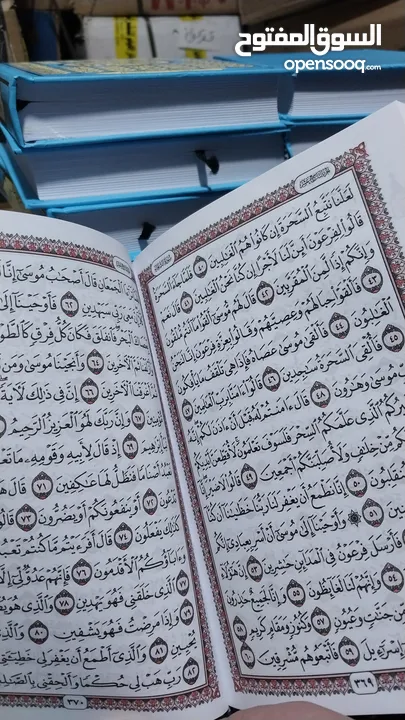 السوق المفتوح
opensooq.com
لَعَلَّنَا نَتَّبِعُ ٱلسَّحَرَةَ إِن كَانُوا۟ هُمُ ٱلْغَٰلِبِينَ ٤٠ فَلَمَّا جَآءَ ٱلسَّحَرَةُ
قَالُوا۟ لِفِرْعَوْنَ أَئِنَّ لَنَا لَأَجْرًا إِن كُنَّا نَحْنُ ٱلْغَٰلِبِينَ ٤١ قَالَ نَعَمْ
وَإِنَّكُمْ إِذًا لَّمِنَ ٱلْمُقَرَّبِينَ ٤٢ قَالَ لَهُم مُّوسَىٰٓ أَلْقُوا۟ مَآ أَنتُم مُّلْقُونَ
٤٣ فَأَلْقَوْا۟ حِبَالَهُمْ وَعِصِيَّهُمْ وَقَالُوا۟ بِعِزَّةِ فِرْعَوْنَ إِنَّا لَنَحْنُ
ٱلْغَٰلِبُونَ ٤٤ فَأَلْقَىٰ مُوسَىٰ عَصَاهُ فَإِذَا هِىَ تَلْقَفُ مَا يَأْفِكُونَ
٤٥ فَأُلْقِىَ ٱلسَّحَرَةُ سَٰجِدِينَ ٤٦ قَالُوٓا۟ ءَامَنَّا بِرَبِّ ٱلْعَٰلَمِينَ ٤٧
مُوسَىٰ وَهَٰرُونَ ٤٨ قَالَ ءَامَنتُمْ لَهُۥ قَبْلَ أَنْ ءَاذَنَ لَكُمْ
ٱلَّذِى عَلَّمَكُمُ ٱلسِّحْرَ فَلَسَوْفَ تَعْلَمُونَ لَأُقَطِّعَنَّ أَيْدِيَكُمْ
مِّنْ خِلَٰفٍ وَلَأُصَلِّبَنَّكُمْ أَجْمَعِينَ ٤٩ قَالُوا۟ لَا ضَيْرَ
٥٠ إِنَّا نَطْمَعُ أَن يَغْفِرَ لَنَا رَبُّنَا خَطَٰيَٰنَآ أَن
٥١ ۞ وَأَوْحَيْنَآ إِلَىٰ مُوسَىٰٓ أَنْ أَسْرِ بِعِبَادِىٓ إِنَّكُم
٥٢ فَأَرْسَلَ فِرْعَوْنُ فِى ٱلْمَدَآئِنِ حَٰشِرِينَ ٥٣ إِنَّ هَٰٓؤُلَآءِ
٥٤ وَإِنَّهُمْ لَنَا لَغَآئِظُونَ ٥٥ وَإِنَّا لَجَمِيعٌ حَٰذِرُونَ
مِّن جَنَّٰتٍ وَعُيُونٍ ٥٧ وَكُنُوزٍ وَمَقَامٍ كَرِيمٍ ٥٨
إِسْرَٰٓءِيلَ ٥٩ فَأَتْبَعُوهُم مُّشْرِقِينَ ٦٠
٣٦٩
ٱلْجَمْعَانِ قَالَ أَصْحَٰبُ مُوسَىٰٓ إِنَّا
رَبِّى سَيَهْدِينِ ٦٢ فَأَوْحَيْنَآ إِلَىٰ
ٱلْبَحْرَ فَٱنفَلَقَ فَكَانَ كُلُّ فِرْقٍ كَٱلطَّوْدِ
ٱلْءَاخَرِينَ ٦٤ وَأَنجَيْنَا مُوسَىٰ وَمَن
أَغْرَقْنَا ٱلْءَاخَرِينَ ٦٦ إِنَّ فِى ذَٰلِكَ لَءَايَةً
٦٧ وَإِنَّ رَبَّكَ لَهُوَ ٱلْعَزِيزُ ٱلرَّحِيمُ
٦٩ إِذْ قَالَ لِأَبِيهِ وَقَوْمِهِۦ مَا تَعْبُدُونَ
أَصْنَامًا فَنَظَلُّ لَهَا عَٰكِفِينَ ٧١ قَالَ هَلْ
٧٢ أَوْ يَنفَعُونَكُمْ أَوْ يَضُرُّونَ ٧٣ قَالُوا۟
كَذَٰلِكَ يَفْعَلُونَ ٧٤ قَالَ أَفَرَءَيْتُم مَّا كُنتُمْ تَعْبُدُونَ
وَءَابَآؤُكُمُ ٱلْأَقْدَمُونَ ٧٦ فَإِنَّهُمْ عَدُوٌّ لِّىٓ إِلَّا
٧٧ ٱلَّذِى خَلَقَنِى فَهُوَ يَهْدِينِ ٧٨ وَٱلَّذِى هُوَ
٧٩ وَإِذَا مَرِضْتُ فَهُوَ يَشْفِينِ ٨٠ وَٱلَّذِى
يُحْيِينِ ٨١ وَٱلَّذِىٓ أَطْمَعُ أَن يَغْفِرَ لِى خَطِيٓـَٔتِى
٨٢ رَبِّ هَبْ لِى حُكْمًا وَأَلْحِقْنِى بِٱلصَّٰلِحِينَ
٣٧٠